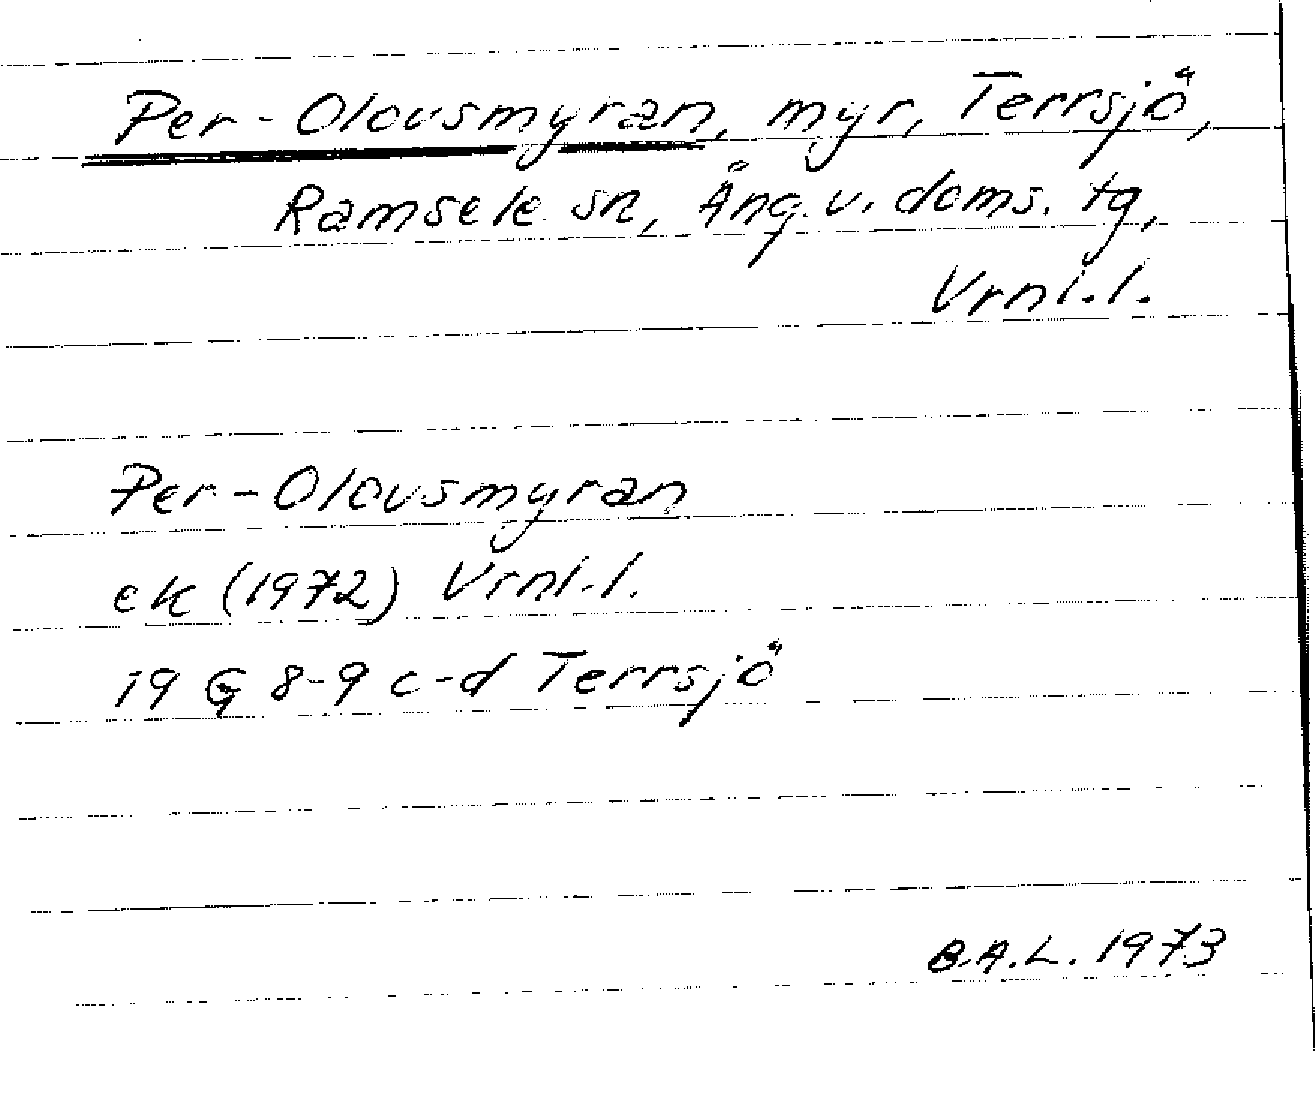 Per-Olovsmyran, myr, Terrsjö,
Ramsele sn, Ång. v. doms. tg,
Vrnl.l.
Per-Olovsmyran
ek (1972) Vrnl.l.
19 G 8-9 c-d Terrsjö
B.A.L. 1973